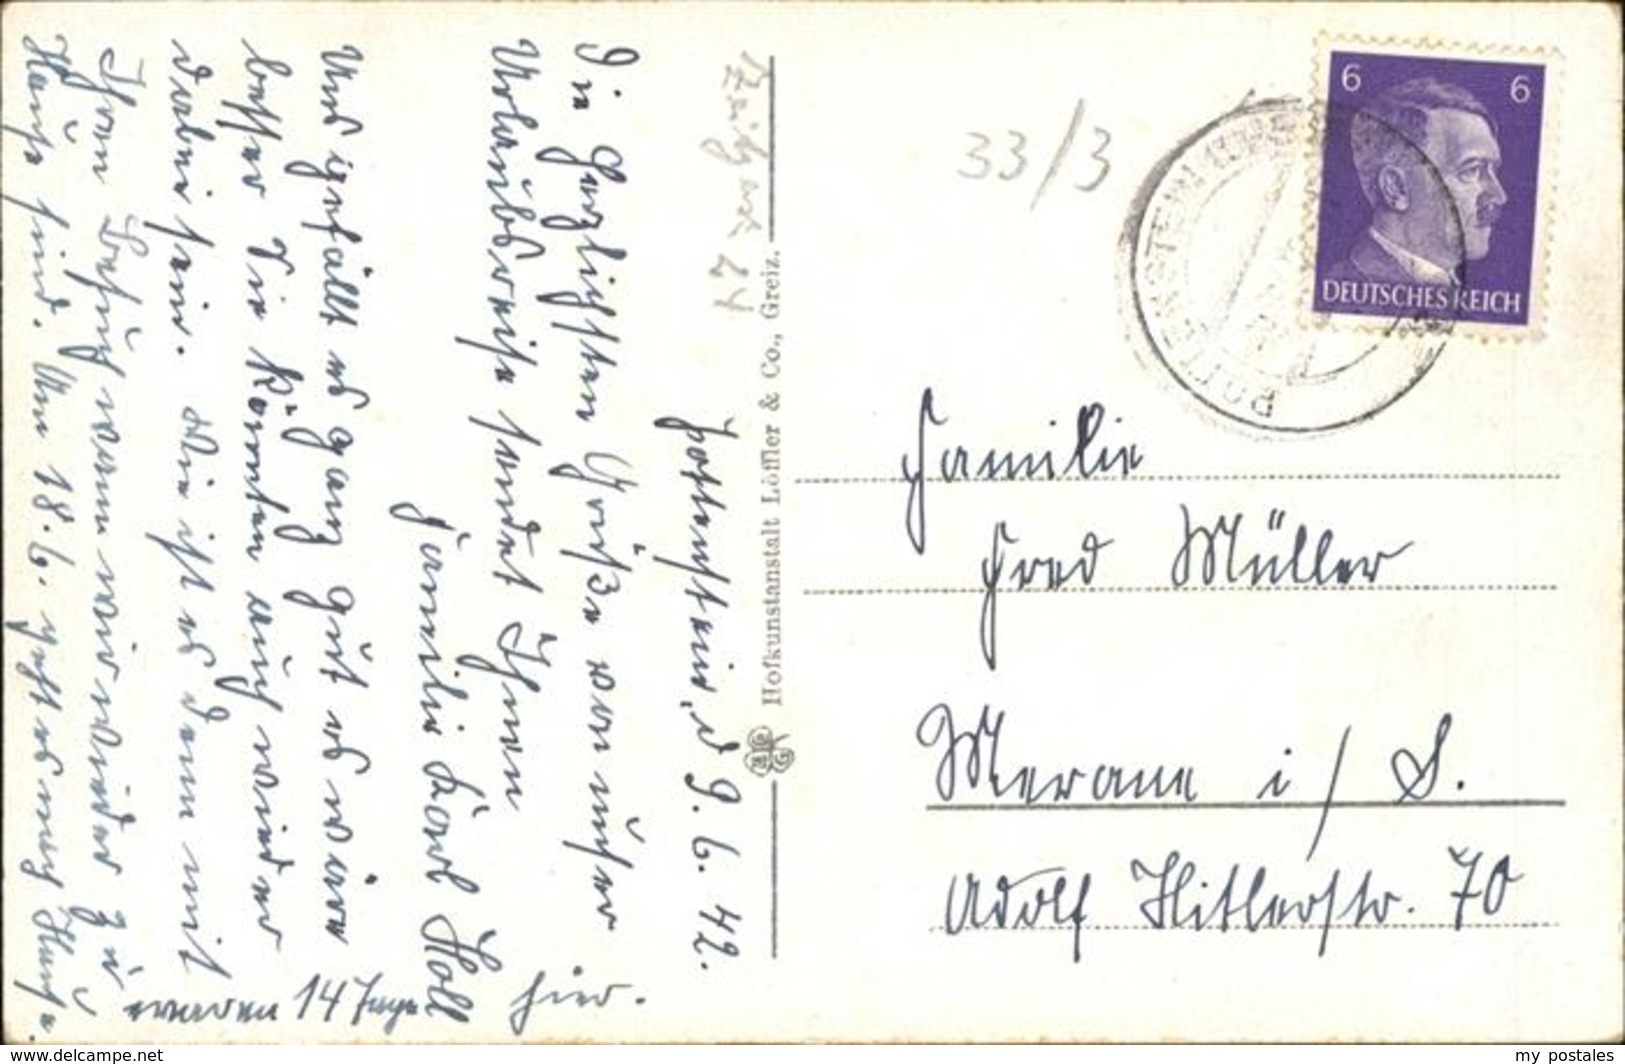 Pottenstein, d 9. 6. 42.
Die herzlichsten Grüße von unser
Urlaubsreise sendet Ihnen
Familie Karl Holl
Uns gefällt es ganz gut es wäre
besser Sie könnten auch wieder
dabei sein. Wie ist es denn mit
Ihren Besuch wann wir wieder zu
Hause sind. Am 18. 6. geht es nach Hause.
waren 14 Tage hier.
Hofkunstanstalt Löffler & Co., Greiz.
33/3
6 6
DEUTSCHES REICH
Familie
Fred Müller
Merane i/S.
Adolf Hitlerstr. 70
www.delcampe.net
my_postales